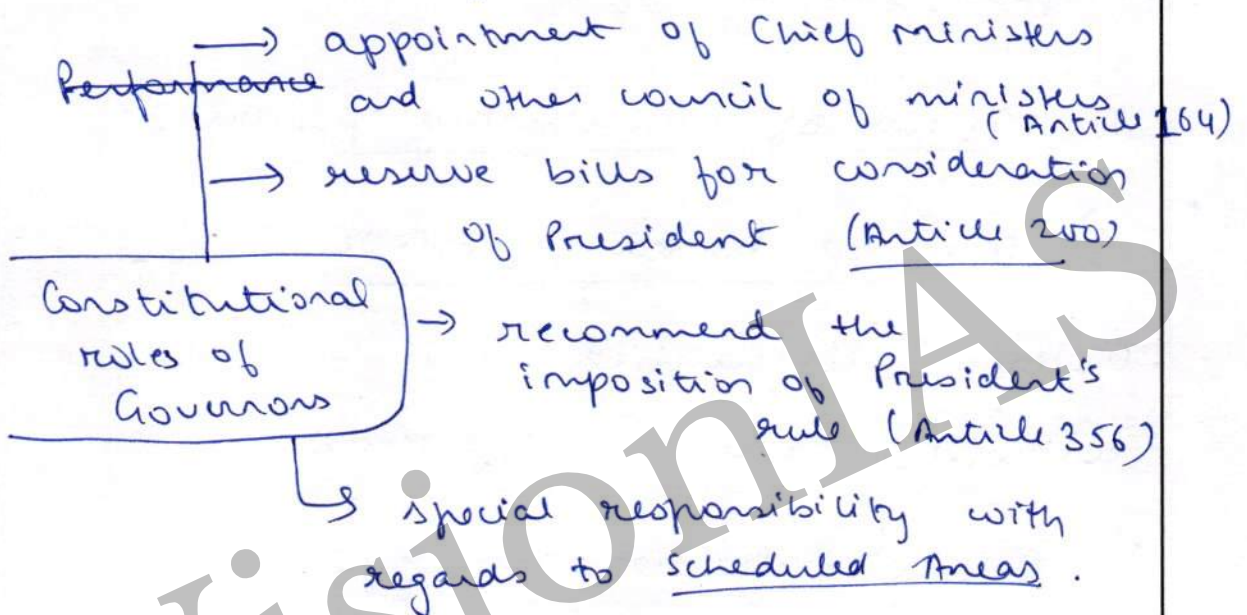 → appointment of Chief Ministers
Performance
and other council of ministers
(Article 164)
→ reserve bills for consideration
of President (Article 200)
Constitutional
roles of
Governors
→ recommend the
imposition of President's
rule (Article 356)
→ special responsibility with
regards to Scheduled Areas.
VisionIAS